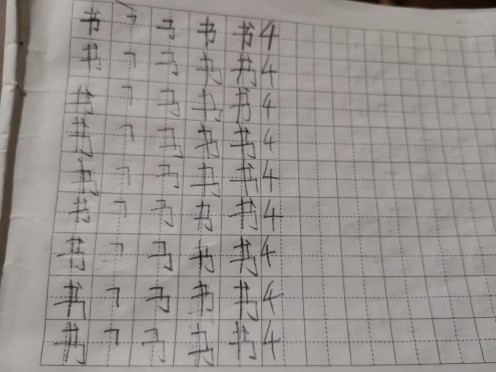 书 ㇕ 书 书 4
书 ㇕ 书 书 4
书 ㇕ 书 书 4
书 ㇕ 书 书 4
书 ㇕ 书 书 4
书 ㇕ 书 书 4
书 ㇕ 书 书 4
书 ㇕ 书 书 4
书 ㇕ 书 书 4